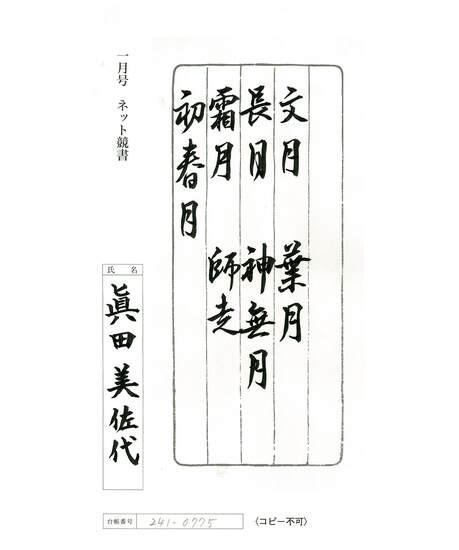 文月 葉月
長月 神無月
霜月 師走
初春月
一月号 ネット競書
氏名
眞田美佐代
台帳番号 241-0775
〈コピー不可〉